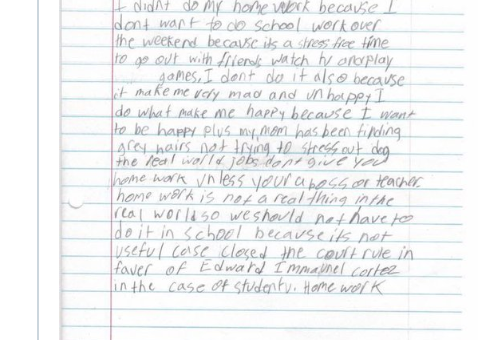 I didnt do my home work because I
dont want to do school work over
the weekend because its a stress free time
to go out with friends watch tv and play
games, I dont do it also because
it make me very mad and unhappy I
do what make me happy because I want
to be happy plus my mom has been finding
grey hairs not trying to stress out dog
the real world jobs dont give you
home work unless your a boss or teacher
home work is not a real thing in the
real world so we should not have to
do it in school because its not
useful case closed the court rule in
faver of Edward Immanuel cortez
in the case of student v. Home work